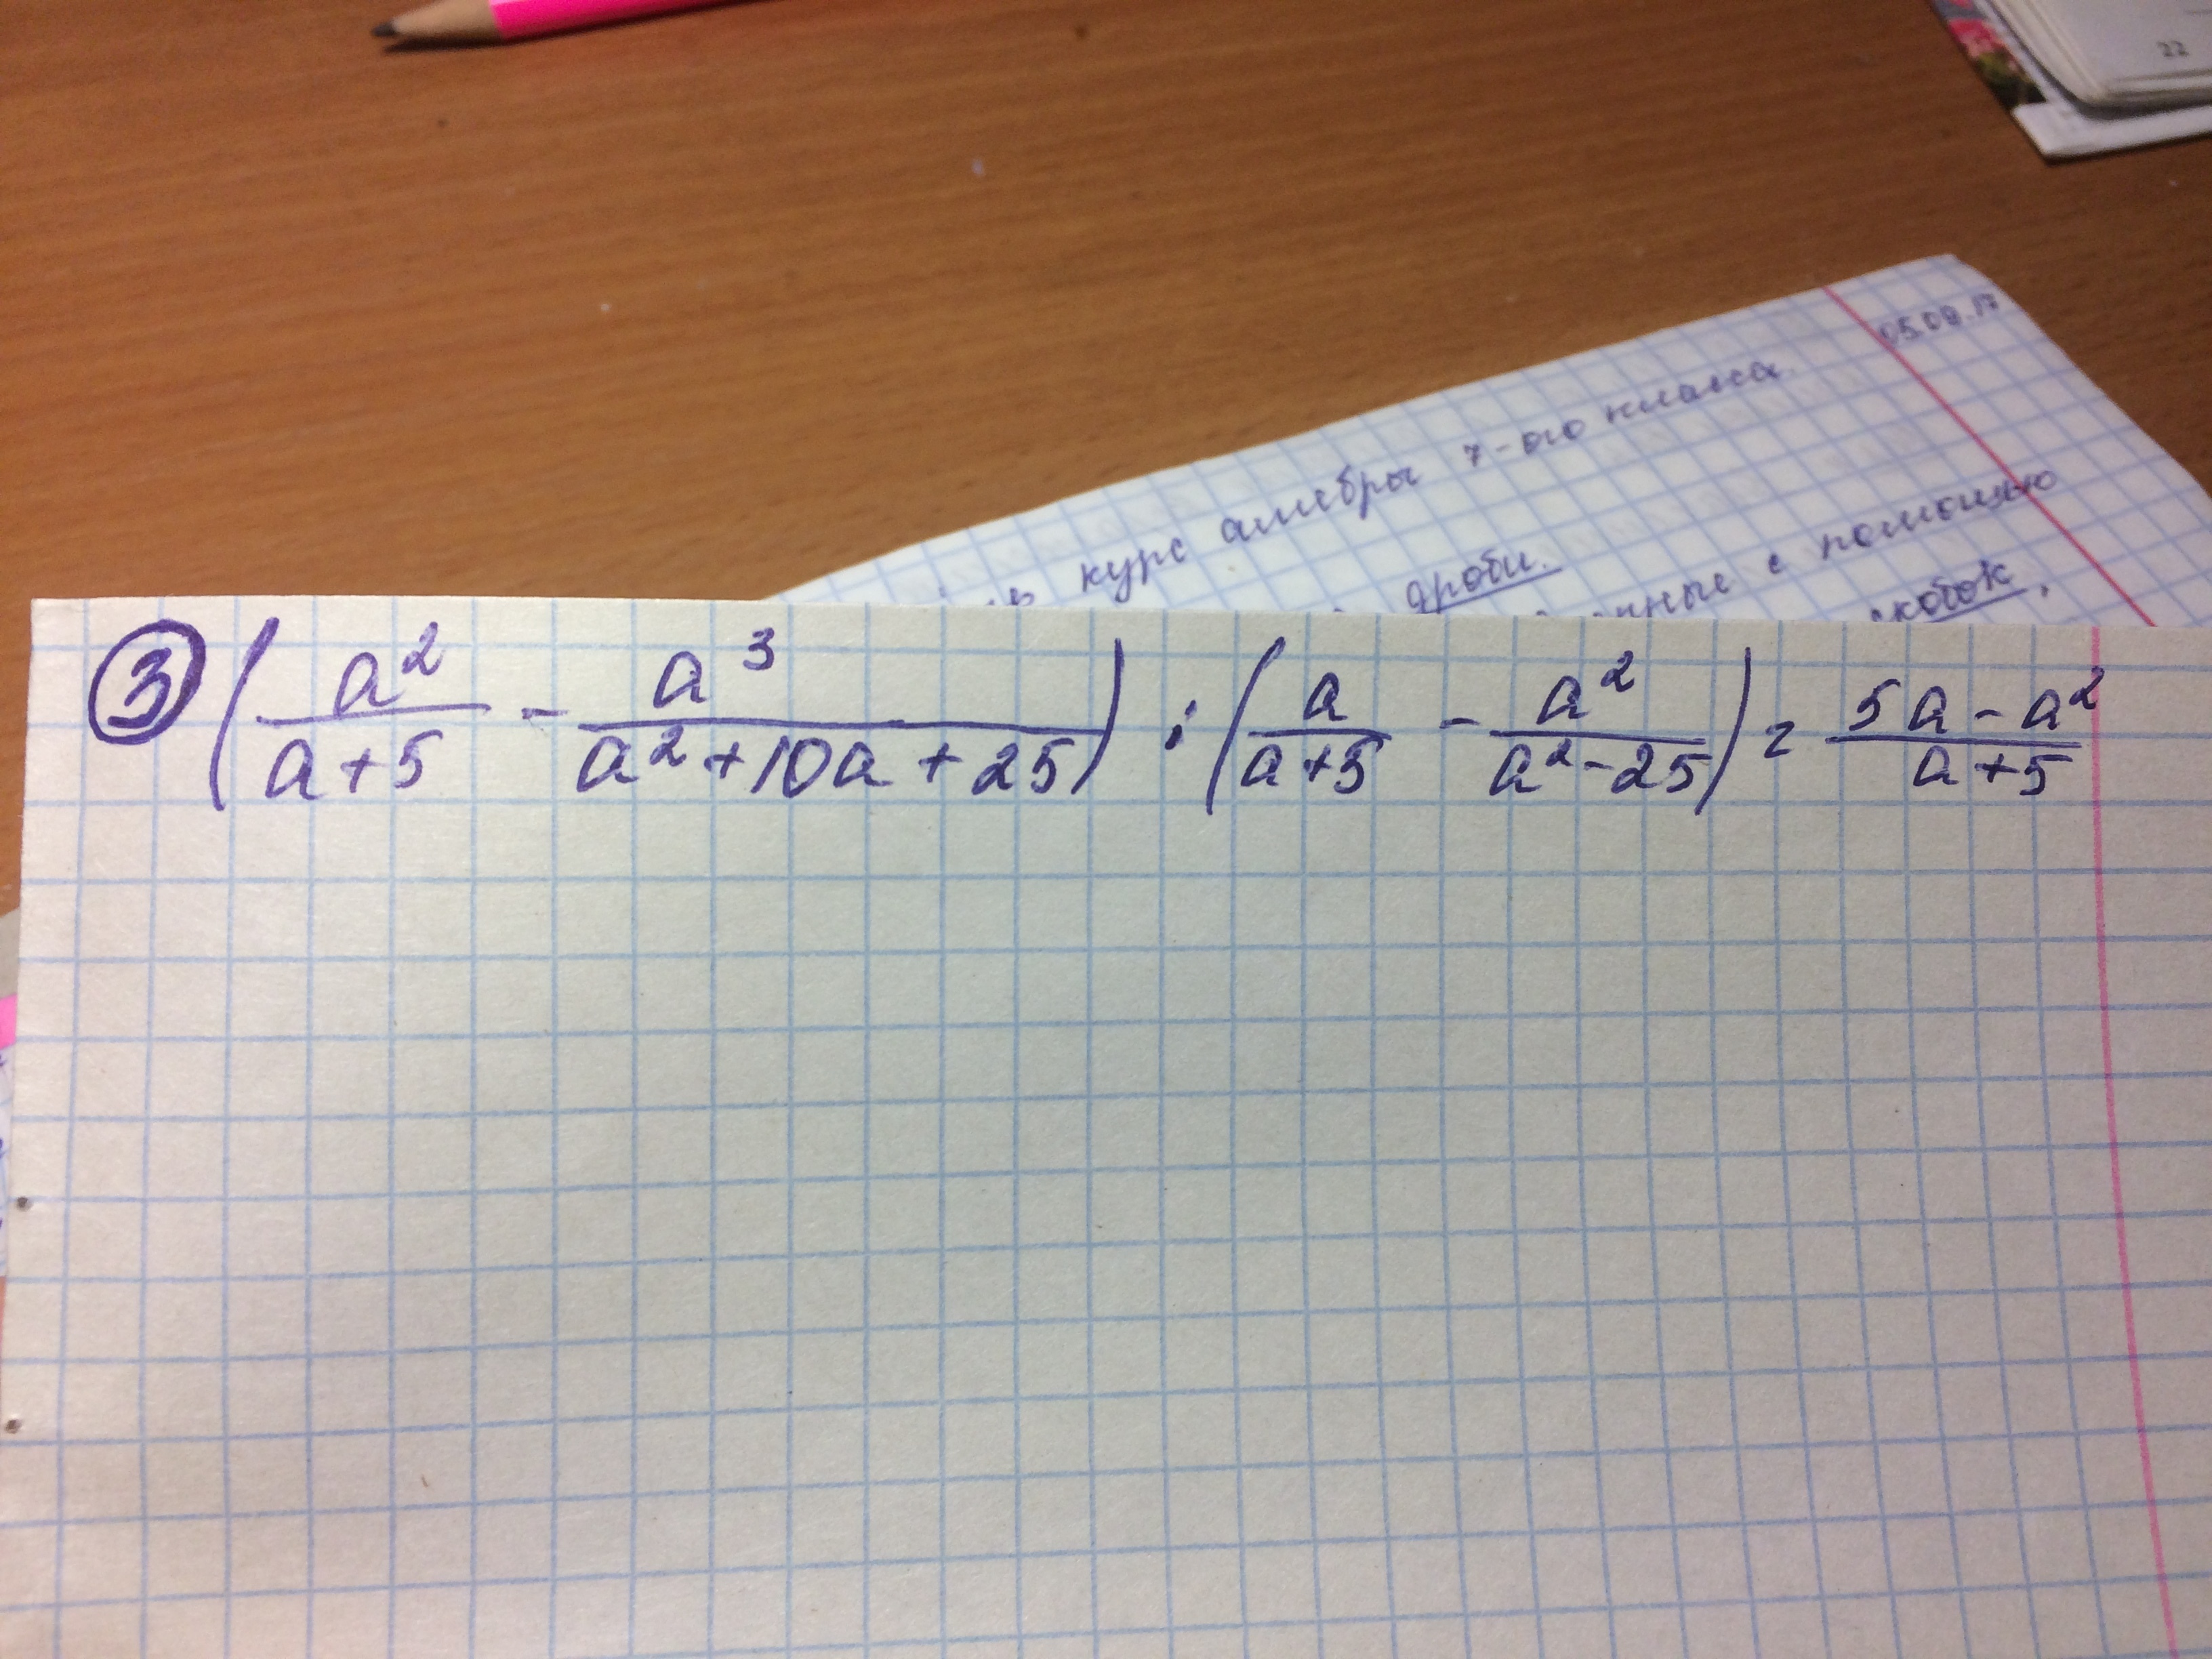 22
05.09.17
курс алгебры 7-ого класса
дроби.
с помощью
скобок.
③ (a²/(a+5) - a³/(a²+10a+25)) : (a/(a+5) - a²/(a²-25)) = (5a-a²)/(a+5)